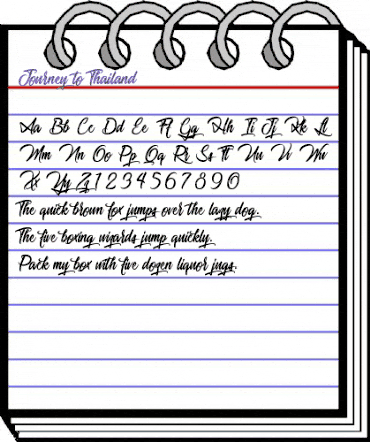 Journey to Thailand
Aa Bb Cc Dd Ee Ff Gg Hh Ii Jj Kk Ll
Mm Nn Oo Pp Qq Rr Ss Tt Uu Vv Ww
Xx Yy Zz 1 2 3 4 5 6 7 8 9 0
The quick brown fox jumps over the lazy dog.
The five boxing wizards jump quickly.
Pack my box with five dozen liquor jugs.